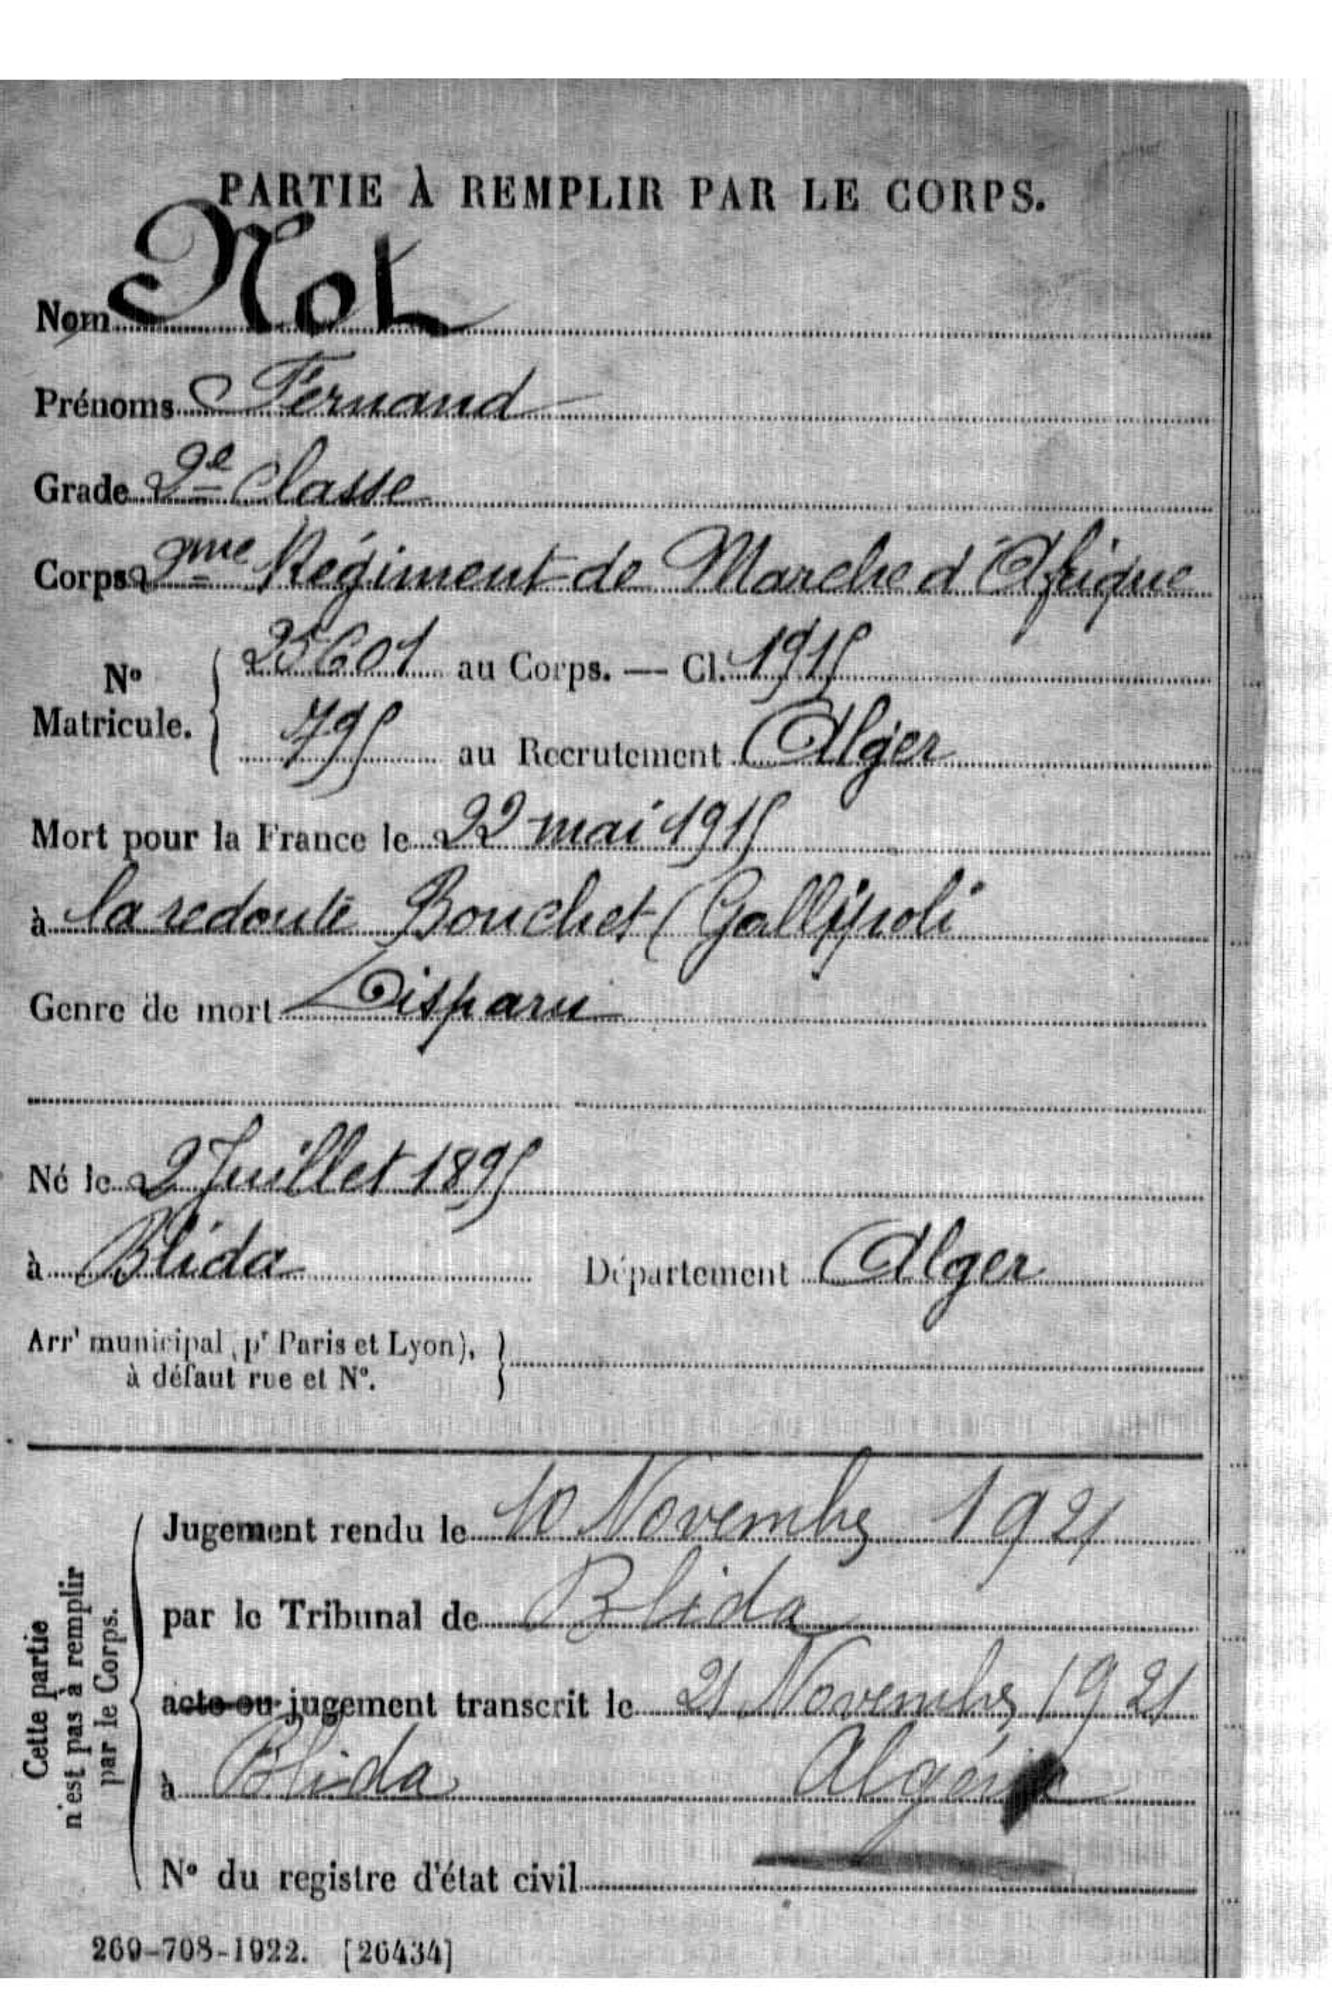 PARTIE À REMPLIR PAR LE CORPS.
Nom Not
Prénoms Fernand
Grade 2e Classe
Corps 2me Régiment de Marche d'Afrique
No Matricule. { 25601 au Corps. — Cl. 1915
795 au Recrutement Alger
Mort pour la France le 22 mai 1915
à la redoute Bouchet (Gallipoli
Genre de mort Disparu
Né le 2 Juillet 1895
à Blida Département Alger
Arrt municipal (pr Paris et Lyon), }
à défaut rue et No.
Cette partie
n'est pas à remplir
par le Corps.
Jugement rendu le 10 Novembre 1921
par le Tribunal de Blida
acte ou jugement transcrit le 21 Novembre 1921
à Blida Algérie
No du registre d'état civil
269-708-1922. [26434]